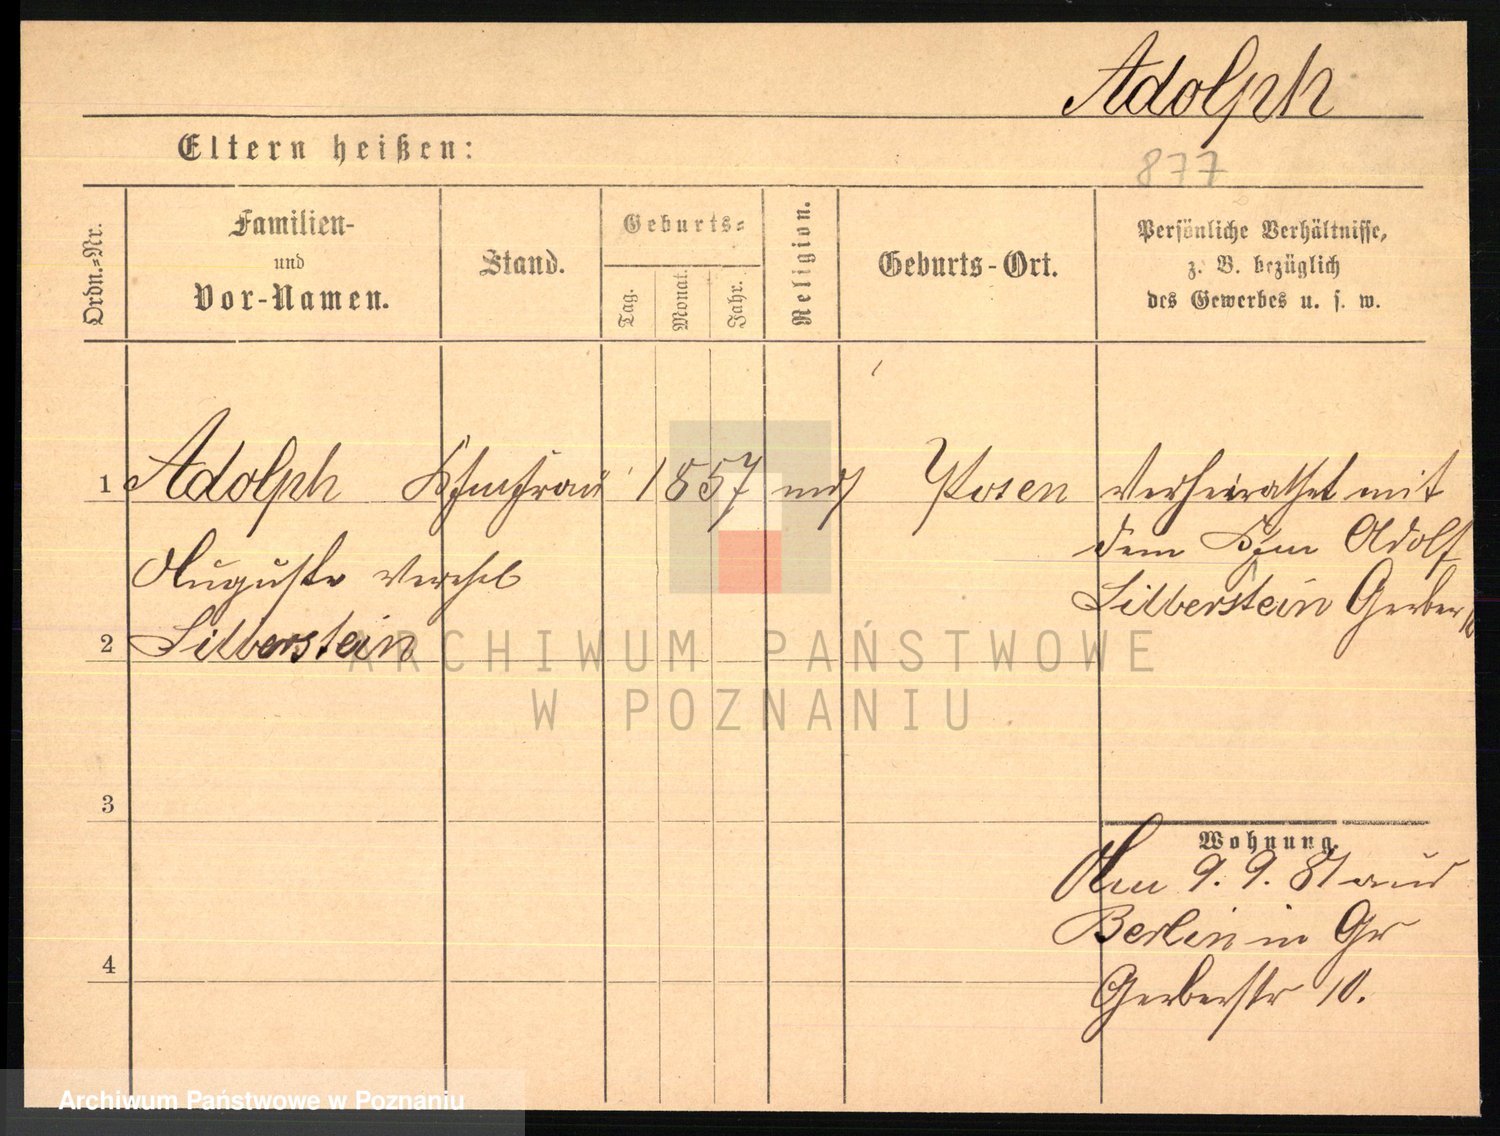 Adolph
Eltern heißen:
877
Ordn.-Nr.
Familien-
und
Vor-Namen.
Stand.
Geburts-
Tag.
Monat.
Jahr.
Religion.
Geburts-Ort.
Persönliche Verhältnisse,
z. B. bezüglich
des Gewerbes u. s. w.
1 Adolph 1857 mos Posen Verheirathet mit
dem Kfm Adolf
Auguste verehel
Silberstein Gerber
2 Silberstein
ARCHIWUM PAŃSTWOWE
W POZNANIU
3
Wohnung.
Am 9. 9. 81 aus
Berlin in Gr
4
Gerberstr 10.
Archiwum Państwowe w Poznaniu